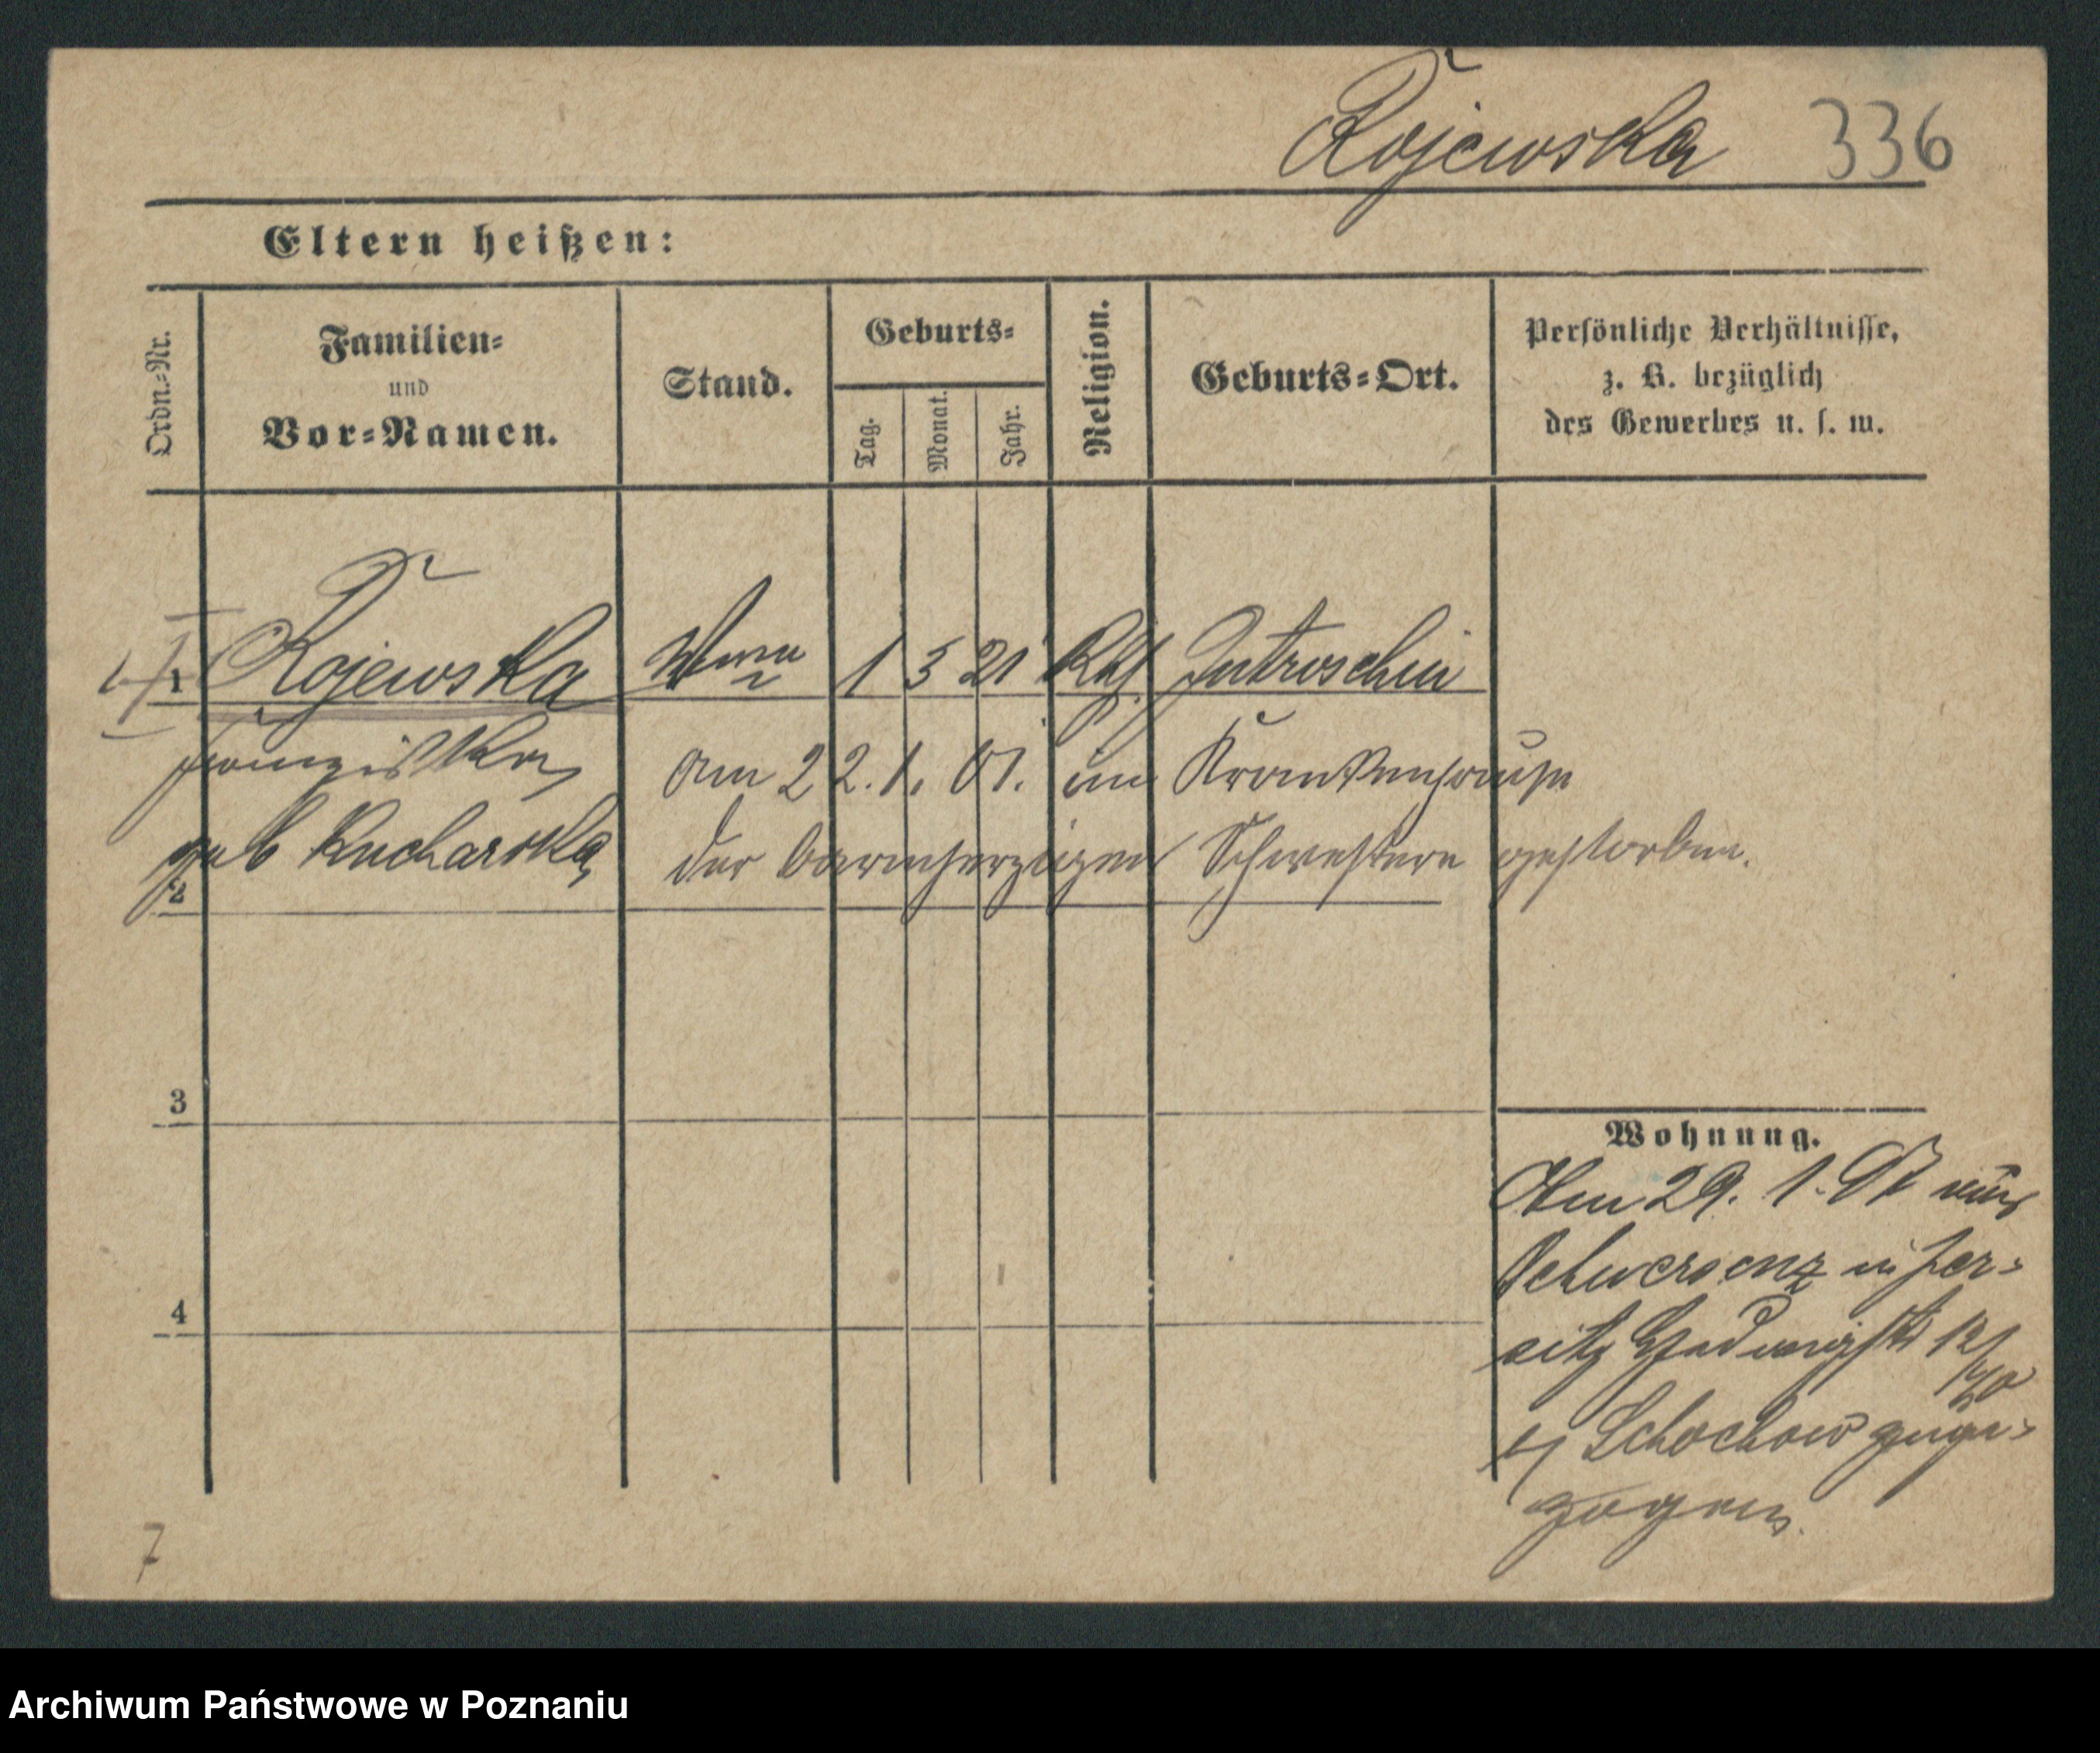 Rojewska 336
Eltern heißen:
Ordn.-Nr.
Familien-
und
Vor-Namen.
Stand.
Geburts-
Tag.
Monat.
Jahr.
Religion.
Geburts-Ort.
Persönliche Verhältnisse,
z. B. bezüglich
des Gewerbes u. s. w.
1 Rojewska Wwe 1 3 21 Kth Jutroschin
Franziska am 22. 1. 01. im Krankenhause
geb Kucharska der barmherzigen Schwestern gestorben.
2
3
4
Wohnung.
Am 29. 1. 97 aus
Schwersenz in Jer-
sitz Hedwigstr 12
Schochow zuge-
zogen.
7
Archiwum Państwowe w Poznaniu